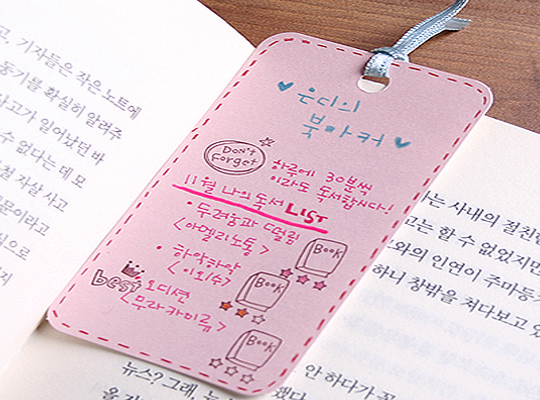 고, 기자들은 작은 노트에
동기를 확실히 알려주
사고가 일어났던 바
수 없다는 데 모
자살 사고
문이라고
심으로
은디의
북마커
Don't
forget
하루에 30분씩
이라도 독서합시다!
11월 나의 독서 LIST
• 두려움과 떨림
<아멜리노통>
Book
• 하악하악
<이외수>
Book
best 오디션
<무라카미류>
Book
사내의 절친한
고는 할 수 없었지만
와의 인연이 주마등
하니 창밖을 쳐다보고 있
안 하다가
뉴스? 그래, 뉴스